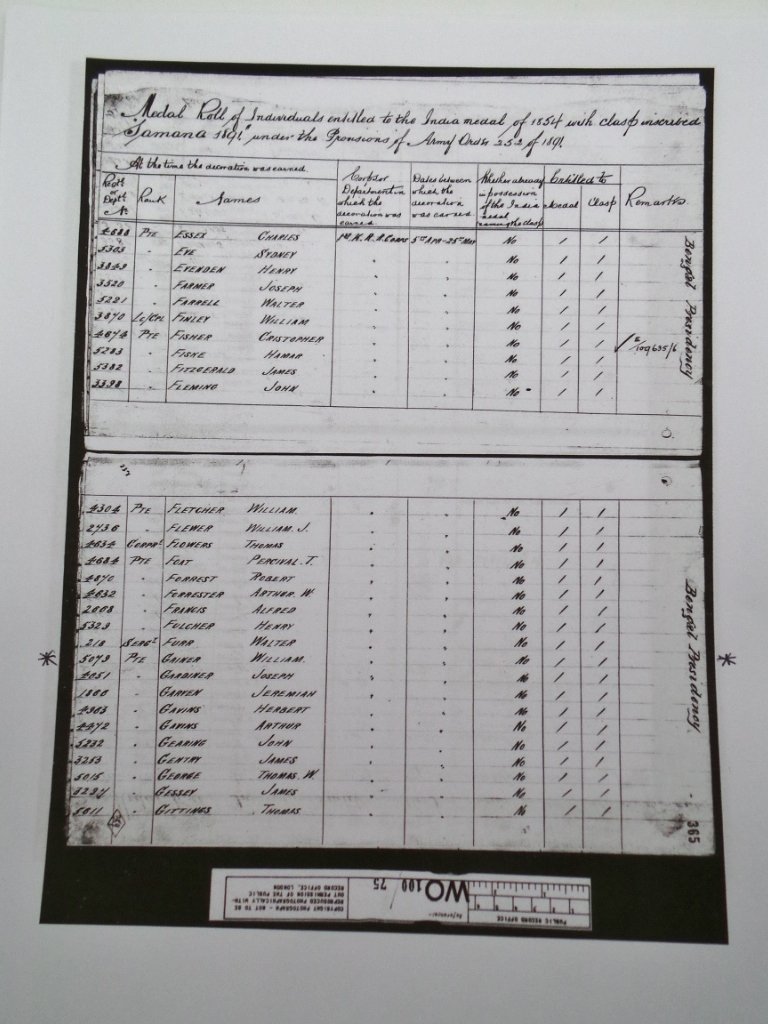 Medal Roll of Individuals entitled to the India medal of 1854 with clasp inscribed
"Samana 1891" under the Provisions of Army Order 252 of 1891.
At the time the decoration was earned.
Regtl or Deptl No. Rank Names Corps or Department in which the decoration was earned Dates between which the decoration was earned Whether already in possession of the India medal naming the clasp Entitled to Medal Clasp Remarks
4688 Pte ESSEX CHARLES 1st K. R. R. Corps 5th Apr - 25th May No / /
5303 " EVE SYDNEY " " No / /
3843 " EVENDEN HENRY " " No / /
3520 " FARMER JOSEPH " " No / /
5221 " FARRELL WALTER " " No / /
3870 Lc/Cpl FINLEY WILLIAM " " No / /
4674 Pte FISHER CRISTOPHER " " No / /
5283 " FISKE HAMAR " " No / / 109635/6
5382 " FITZGERALD JAMES " " No / /
3398 " FLEMING JOHN " " No / /
Bengal Presidency
4304 Pte FLETCHER WILLIAM " " No / /
2736 " FLEWER WILLIAM. J. " " No / /
4634 Corpl FLOWERS THOMAS " " No / /
4684 Pte FOAT PERCIVAL. T. " " No / /
4870 " FORREST ROBERT " " No / /
4632 " FORRESTER ARTHUR. W. " " No / /
2008 " FRANCIS ALFRED " " No / /
5323 " FULCHER HENRY " " No / /
218 Sergt FURR WALTER " " No / /
* 5073 Pte GAINER WILLIAM " " No / / *
4051 " GARDINER JOSEPH " " No / /
1800 " GARVEN JEREMIAH " " No / /
4363 " GAVINS HERBERT " " No / /
4472 " GAVINS ARTHUR " " No / /
5232 " GEARING JOHN " " No / /
3253 " GENTRY JAMES " " No / /
5015 " GEORGE THOMAS. W. " " No / /
3237 " GESSEY JAMES " " No / /
5011 " GITTINGS THOMAS " " No / /
Bengal Presidency
365
PUBLIC RECORD OFFICE
Reference:-
WO 100/75
COPYRIGHT PHOTOGRAPH - NOT TO BE
REPRODUCED PHOTOGRAPHICALLY WITH-
OUT PERMISSION OF THE PUBLIC
RECORD OFFICE, LONDON